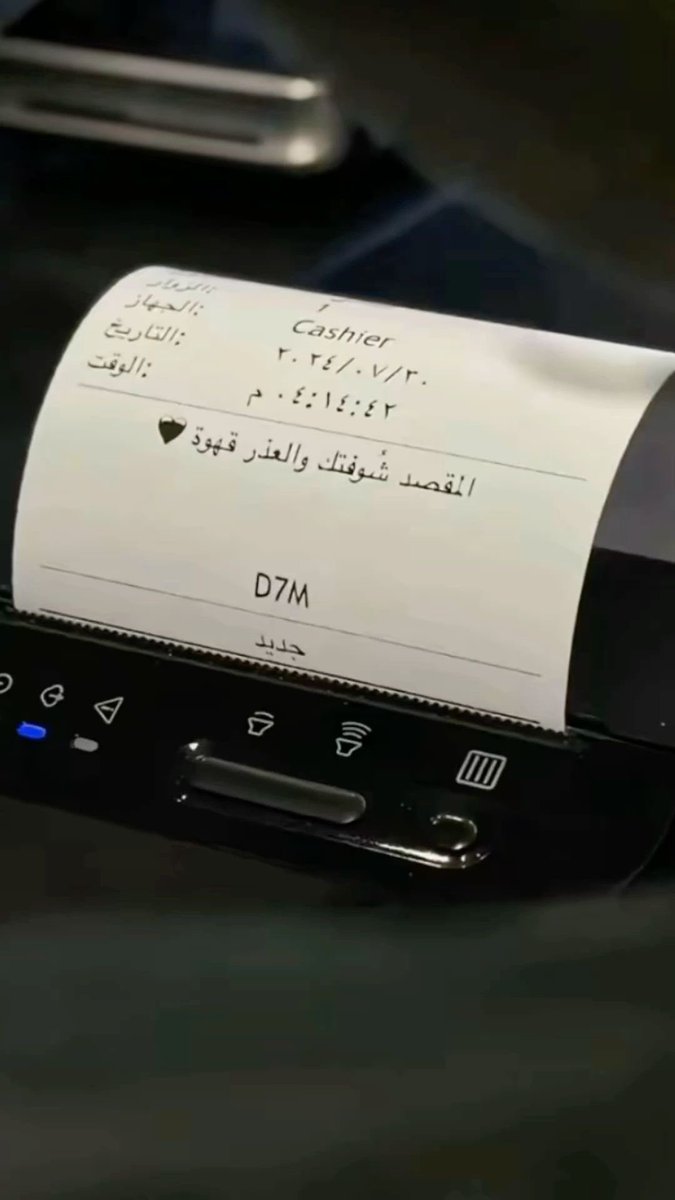 الجهاز: Cashier
التاريخ: ٢٠٢٤/٠٧/٣٠
الوقت: ٠٤:١٤:٤٢ م
المقصد شُوفتك والعذر قهوة 🖤
D7M
جديد